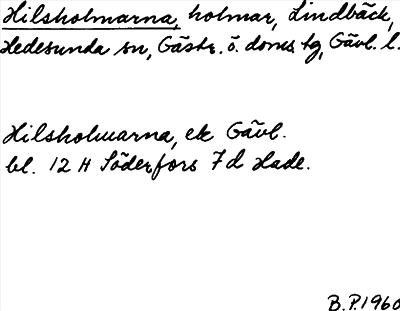 Hilsholmarna, holmar, Lindbäck,
Hedesunda sn, Gästr. ö. doms tg, Gävl. l.
Hilsholmarna, ek Gävl.
bl. 12 H Söderfors 7 d Hade.
B.P. 1960